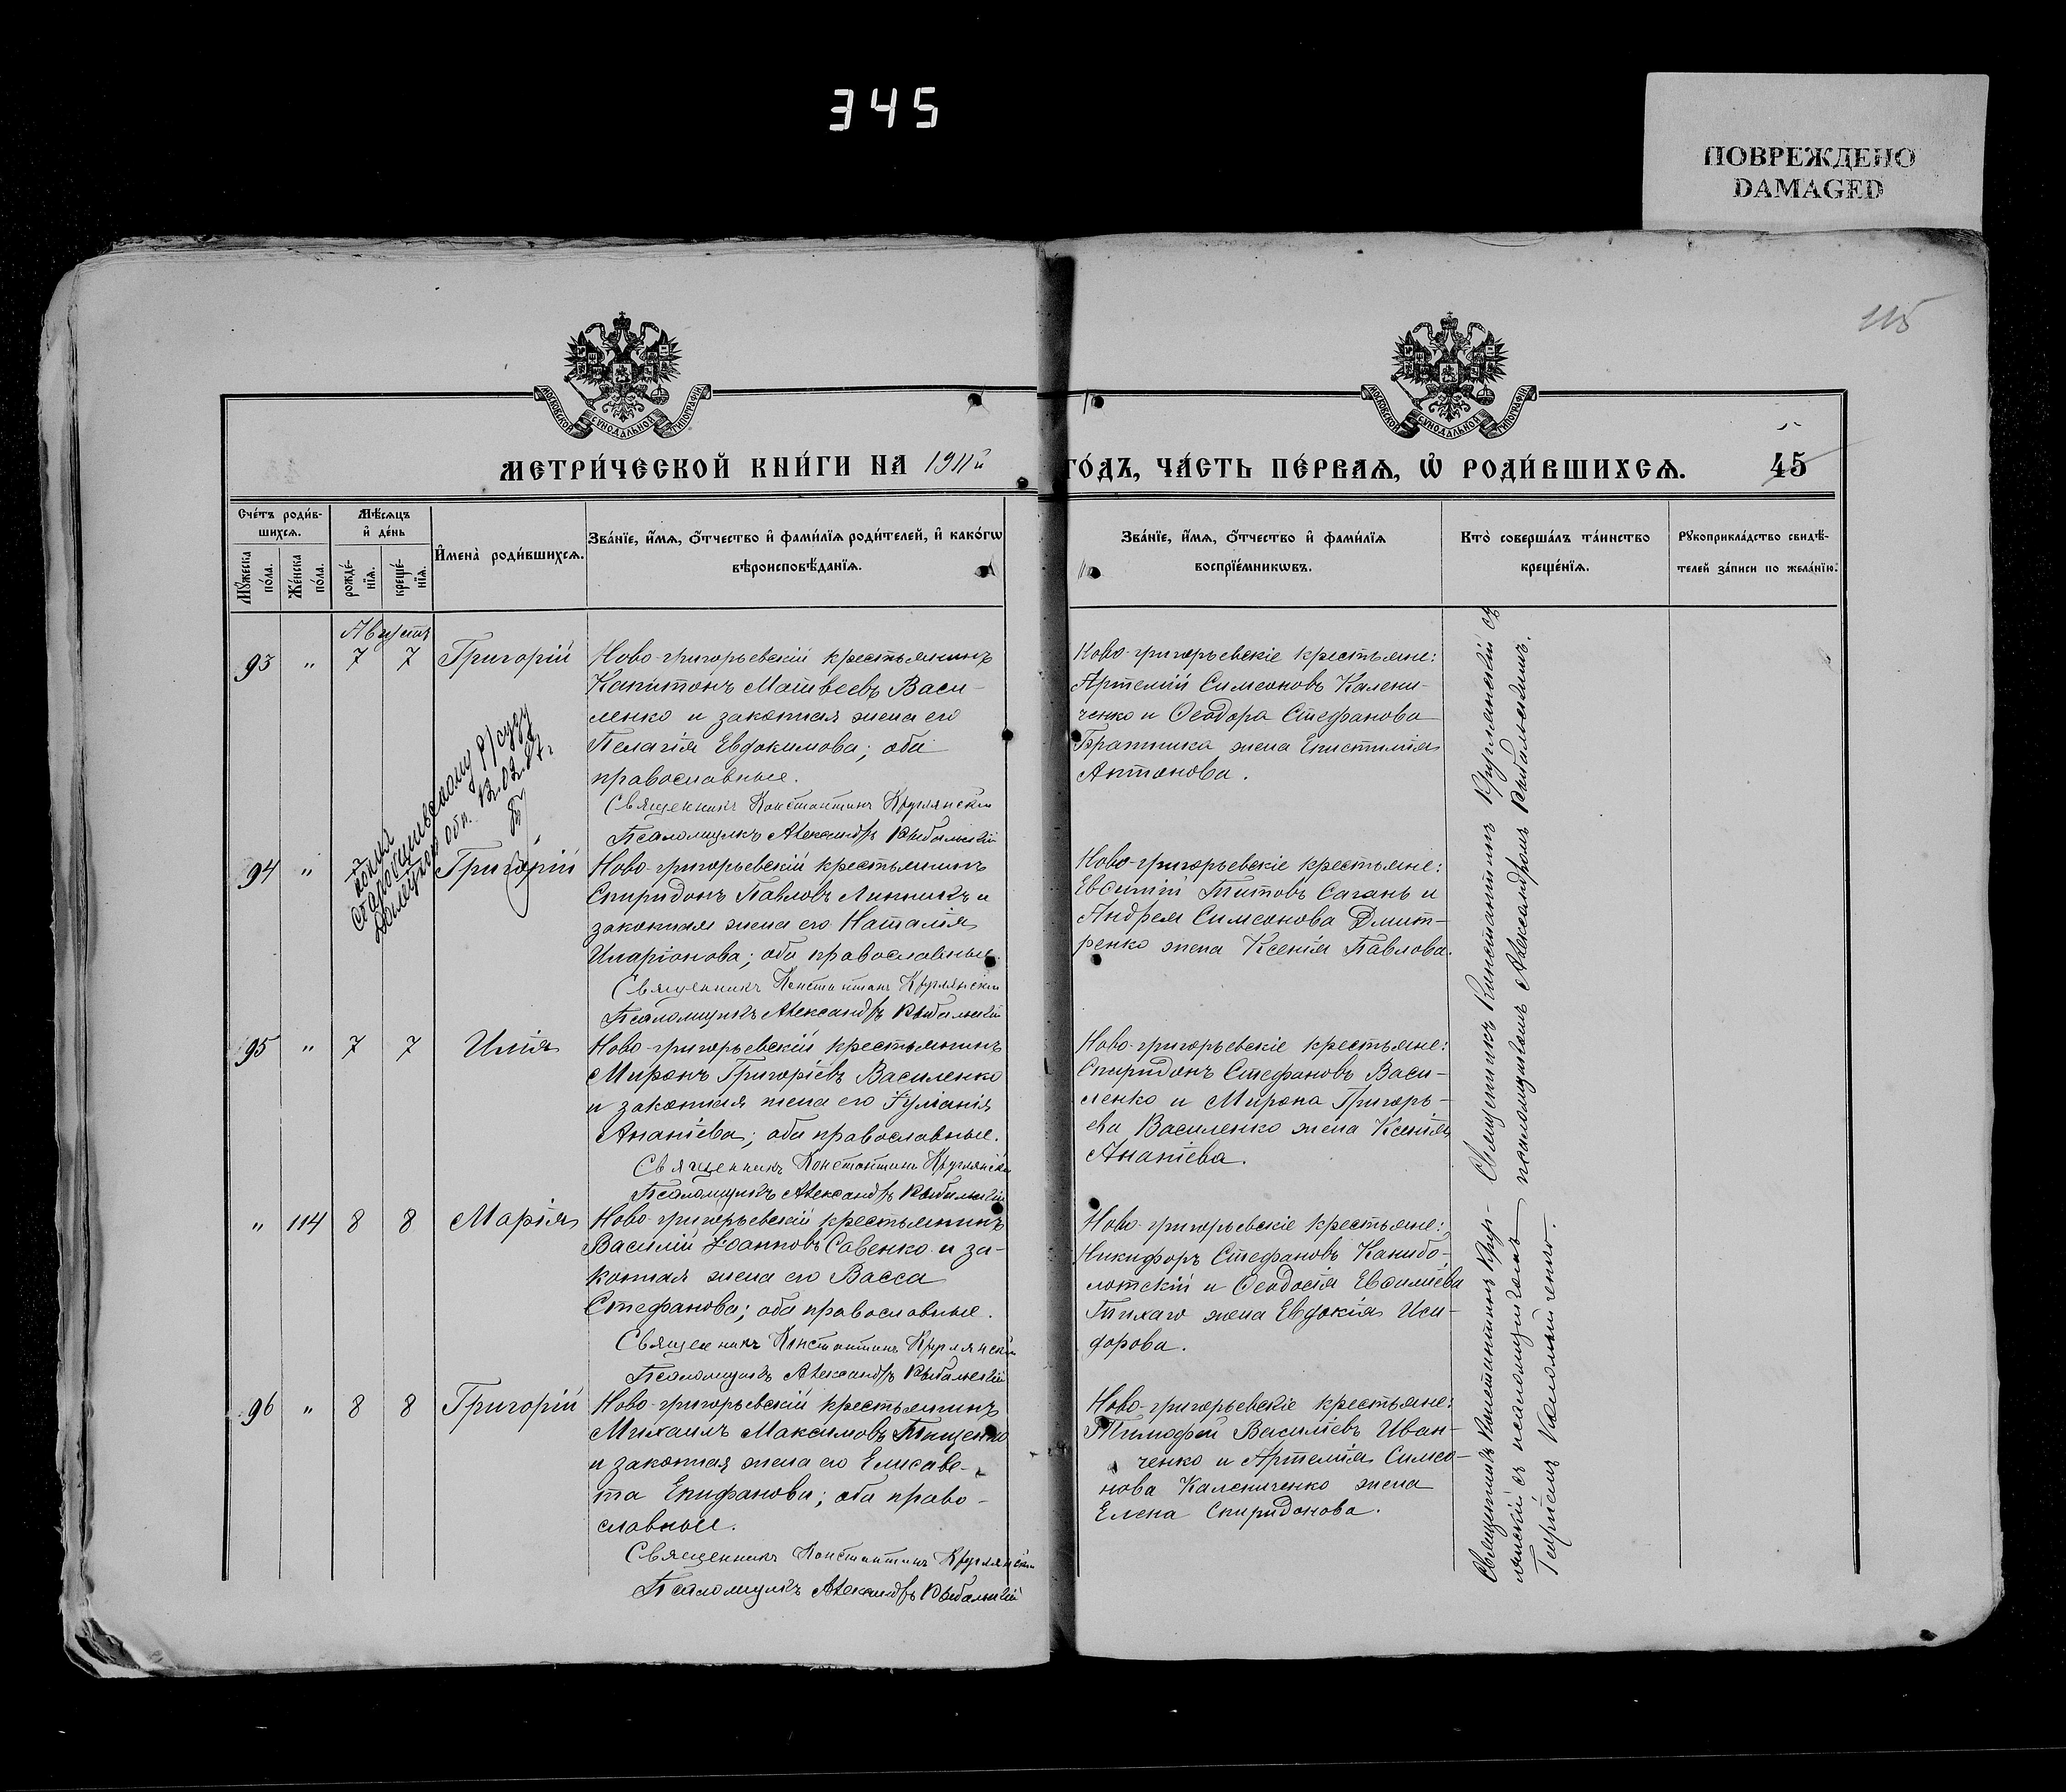 345
ПОВРЕЖДЕНО
DAMAGED
115
МОСКОВСКОЙ СѴНОДАЛЬНОЙ ТИПОГРАФІИ
МОСКОВСКОЙ СѴНОДАЛЬНОЙ ТИПОГРАФІИ
МЕТРИ́ЧЕСКОЙ КНИ́ГИ НА 1911й
ГО́ДЪ, ЧА́СТЬ ПЕ́РВАѦ, Ѡ҆ РОДИ́ВШИХСѦ.
45
Сче́тъ роди́в-
шихсѧ.
Мꙋ́жеска
по́ла.
Же́нска
по́ла.
Мѣ́сѧцъ
и҆ де́нь
рожде́-
нїѧ.
креще́-
нїѧ.
И҆мена̀ роди́вшихсѧ.
Зва́нїе, и҆́мѧ, ѻ҆́тчество и҆ фами́лїѧ роди́телей, и҆ како́гѡ
вѣроисповѣ́данїѧ.
Зва́нїе, и҆́мѧ, ѻ҆́тчество и҆ фами́лїѧ
воспрїе́мникѡвъ.
Кто̀ соверша́лъ та́инство
креще́нїѧ.
Рꙋкоприкла́дство свидѣ́-
телей за́писи по жела́нїю.
Августъ
93 " 7 7 Григорій
Ново-григорьевскій крестьянинъ
Капитонъ Матвеевъ Васи-
ленко и законная жена его
Пелагія Евдокимова; оба
православные.
Священникъ Константинъ Круглянскій
Псаломщикъ Александръ Рыбальскій
Ново-григорьевскіе крестьяне:
Артемій Симеоновъ Калени-
ченко и Ѳеодора Стефанова
Братника жена Епистимія
Антонова.
копия
13.02.
94 " Григорій
Ново-григорьевскій крестьянинъ
Спиридонъ Павловъ Линникъ и
законная жена его Наталія
Иларіонова; оба православные.
Священникъ Константинъ Круглянскій
Псаломщикъ Александръ Рыбальскій
Ново-григорьевскіе крестьяне:
Евсигній Титовъ Сагань и
Андрея Симеонова Дмит-
ренко жена Ксенія Павлова.
95 " 7 7 Илія
Ново-григорьевскій крестьянинъ
Миронъ Григоріевъ Василенко
и законная жена его Іуліанія
Ананіева; оба православные.
Священникъ Константинъ Круглянскій
Псаломщикъ Александръ Рыбальскій
Ново-григорьевскіе крестьяне:
Спиридонъ Стефановъ Васи-
ленко и Мирона Григорь-
ева Василенко жена Ксенія
Ананіева.
" 114 8 8 Марія
Ново-григорьевскій крестьянинъ
Василій Іоанновъ Савенко и за-
конная жена его Васса
Стефанова; оба православные.
Священникъ Константинъ Круглянскій
Псаломщикъ Александръ Рыбальскій
Ново-григорьевскіе крестьяне:
Никифоръ Стефановъ Канибо-
лотскій и Ѳеодосія
Тихаго жена Евдокія Иси-
дорова.
96 " 8 8 Григорій
Ново-григорьевскій крестьянинъ
Михаилъ Максимовъ Тищенко
и законная жена его Елисаве-
та Епифанова; оба право-
славные.
Священникъ Константинъ Круглянскій
Псаломщикъ Александръ Рыбальскій
Ново-григорьевскіе крестьяне:
Тимофей Василіевъ Иван-
ченко и Артемія Симео-
нова Калениченко жена
Елена Спиридонова.
Священникъ Константинъ Круглянскій съ
псаломщикомъ Александромъ Рыбальскимъ.
Священникъ Константинъ Круг-
лянскій съ псаломщикомъ
Георгіемъ